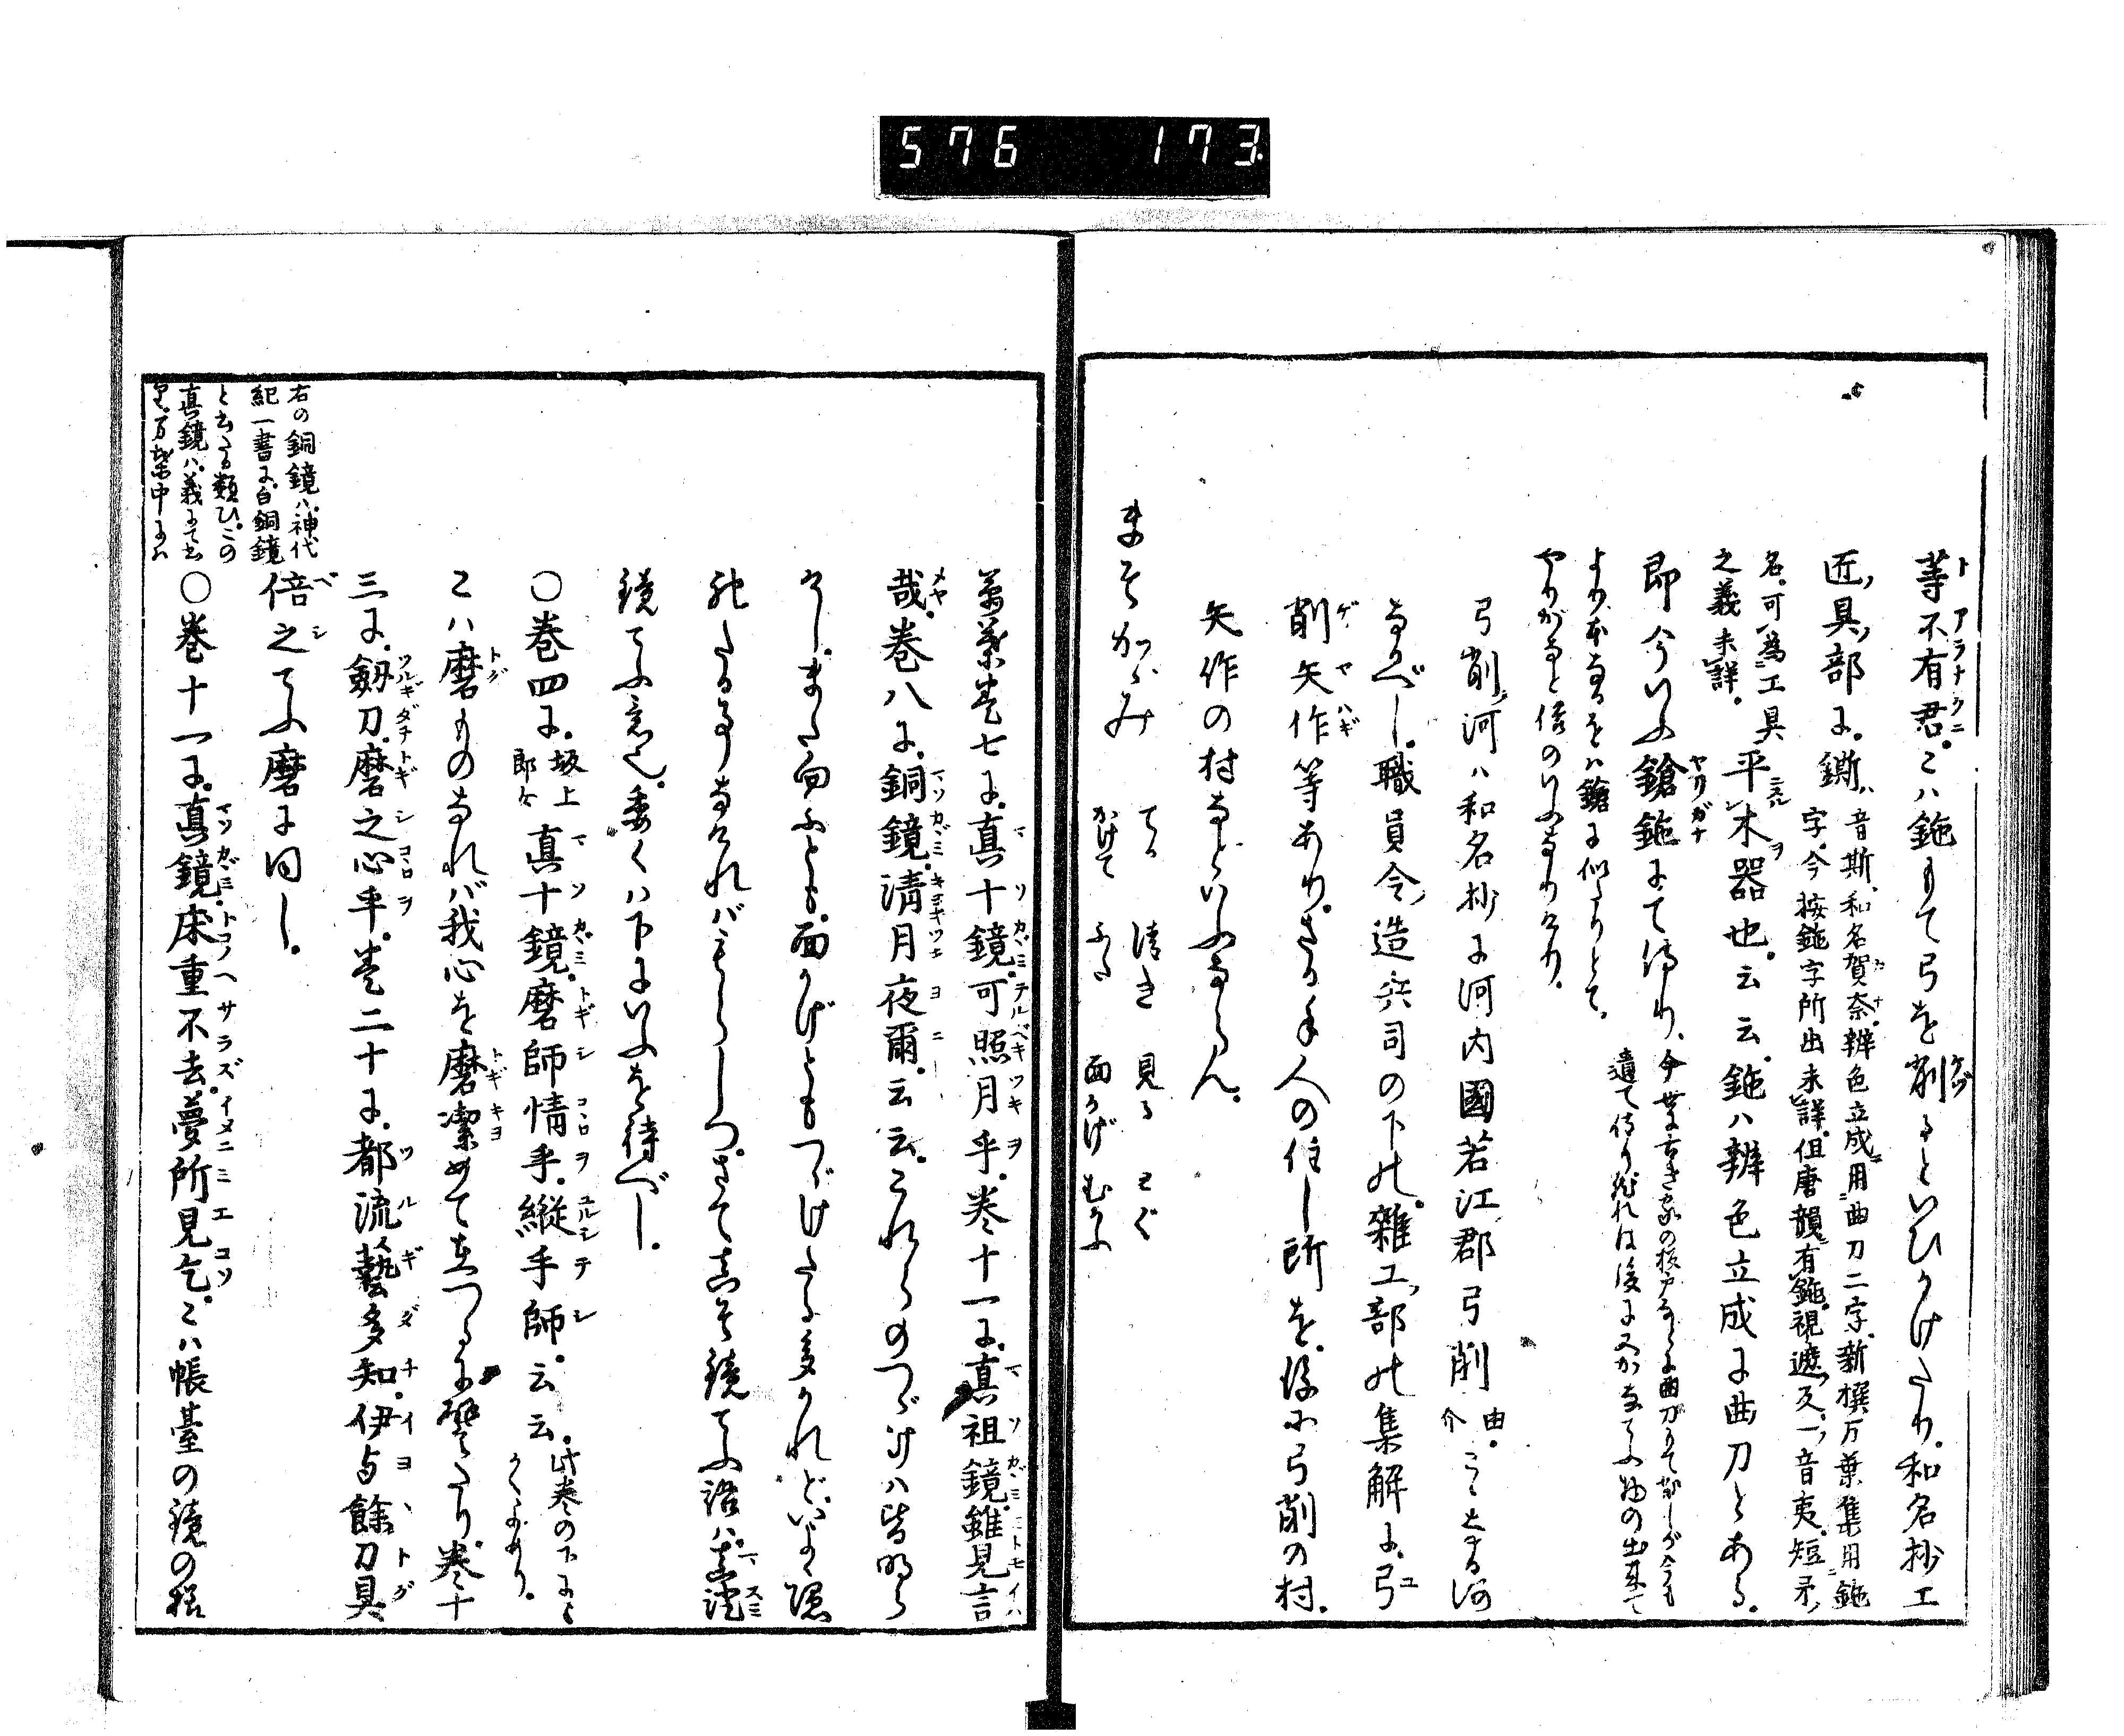 576 173
等不有君。こハ鉇もて弓を削るといひかけたり。和名抄工
匠ノ具ノ部に。鐁
音斯、和名賀奈。辨色立成ニ用曲刀二字。新撰万葉集用鉇
字。今按鉇字所出未詳。但唐韻ニ有鉇。視遮ノ反、一ノ音夷。短矛ノ
名。可為工具
之義未詳。
平木器也。云云。鉇ハ辨色立成に曲刀とある。
即今いふ鎗鉇にて侍り、
今世に古き家の板戸などに曲刀
よりが本なるをハ鎗に似たりとて、
やりがなと俗のいふなりけり。
弓削ノ河ハ和名抄に河内國若江郡弓削
由介
とある河
なるべし。職員令ノ造兵司の下の雜工ノ部の集解に。弓
削矢作等あり。さる手人の住し所を。後に弓削の村。
矢作の村などいふならん。
まそかゞみ
てる 清き 見る とぐ
かけて ふた 面かげ むかふ
萬葉巻七に。真十鏡。可照月乎。巻十一に。真祖鏡。雖見言
哉。巻八に。銅鏡。清月夜爾。云云。これらのつゞけハ皆明ら
けし。また向ふとも。面かげともつゞけたる多かれど。いたく隠
れたる事なければもらしつ。さて真そ鏡てふ語ハ。真澄
鏡てふ意也。委くハ下にいふを待べし。
〇巻四に。
坂上
郎女
真十鏡。磨師情乎。縦手師。云云。
此巻の下にも
かくよめり。
こハ磨ものなれバ我心を磨潔めて在つるに譬たり。巻十
三に。剱刀。磨之心乎。巻二十に。都流藝多知。伊与餘刀具
倍之てふ磨に同し。
〇巻十一に。真鏡。床重不去。夢所見乞。こハ帳臺の鏡の様
右の銅鏡ハ。神代
紀一書に。白銅鏡
と云たる類ひ。この
真鏡ハ。義にて書
り。万葉中にハ